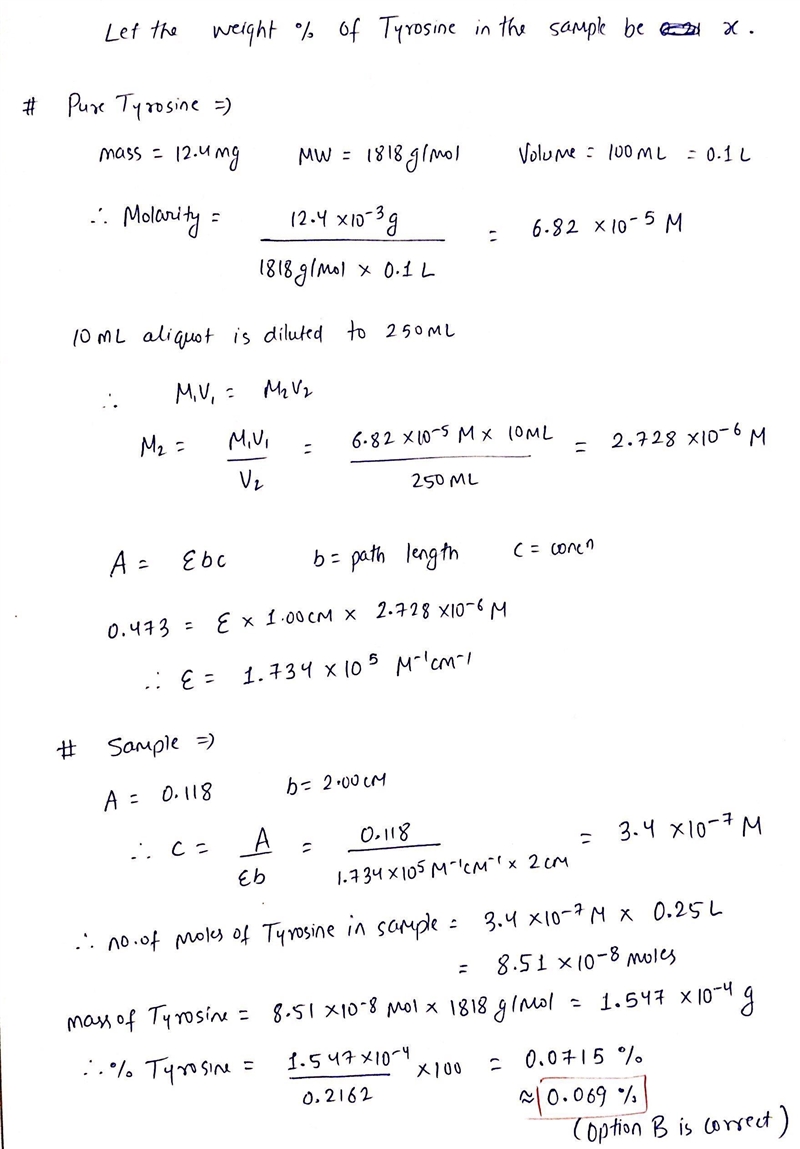 Let the weight % of Tyrosine in the sample be x.
# Pure Tyrosine =>
mass = 12.4mg MW = 1818 g/mol Volume = 100 ML = 0.1 L
∴ Molarity = 12.4 ×10⁻³g / 1818 g/mol × 0.1 L = 6.82 ×10⁻⁵ M
10 ML aliquot is diluted to 250 ML
∴ M₁V₁ = M₂V₂
M₂ = M₁V₁ / V₂ = 6.82 ×10⁻⁵ M × 10 ML / 250 ML = 2.728 ×10⁻⁶ M
A = Ɛbc b = path length C = concⁿ
0.473 = Ɛ × 1.00 cm × 2.728 ×10⁻⁶ M
∴ Ɛ = 1.734 × 10⁵ M⁻¹cm⁻¹
# Sample =>
A = 0.118 b = 2.00 cm
∴ C = A / Ɛb = 0.118 / 1.734 ×10⁵ M⁻¹cm⁻¹ × 2 cm = 3.4 ×10⁻⁷ M
∴ no. of moles of Tyrosine in sample = 3.4 ×10⁻⁷ M × 0.25 L
= 8.51 ×10⁻⁸ moles
mass of Tyrosine = 8.51 ×10⁻⁸ mol × 1818 g/mol = 1.547 ×10⁻⁴ g
∴ % Tyrosine = 1.547 ×10⁻⁴ / 0.2162 ×100 = 0.0715 %
≈ 0.069 %
(Option B is correct)